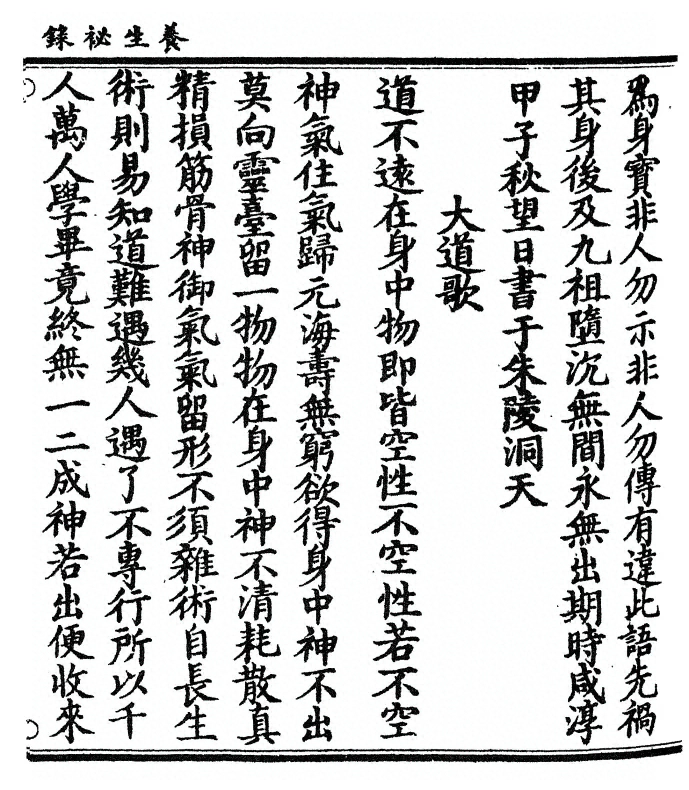 養生祕錄
爲身寶非人勿示非人勿傳有違此語先禍
其身後及九祖墮沉無間永無出期時咸淳
甲子秋望日書于朱陵洞天
大道歌
道不遠在身中物即皆空性不空性若不空
神氣住氣歸元海壽無窮欲得身中神不出
莫向靈臺留一物物在身中神不清耗散真
精損筋骨神御氣氣留形不須雜術自長生
術則易知道難遇幾人遇了不專行所以千
人萬人學畢竟終無一二成神若出便收來